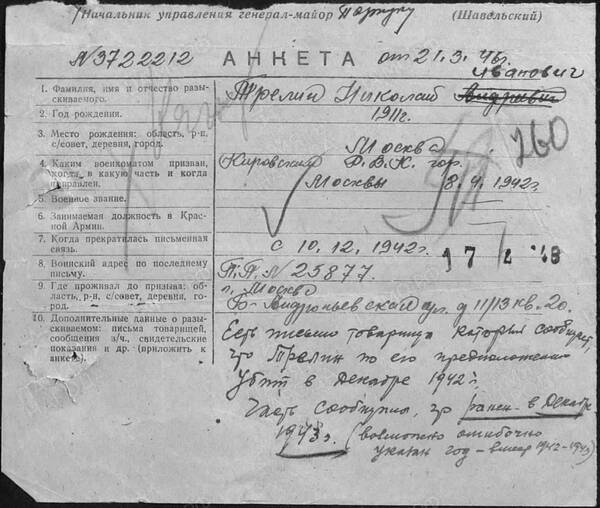 Начальник управления генерал-майор (Шавельский)
N3722212 АНКЕТА от 21.3.46г.
Иванович
1. Фамилия, имя и отчество разыскиваемого. Трелин Николай Андреевич
2. Год рождения. 1911г.
3. Место рождения: область, р-н, с/совет, деревня, город. Москва
260
4. Каким военкоматом призван, когда, в какую часть и когда направлен. Кировским Р.В.К. гор.
Москвы 8.4.1942г.
5. Военное звание.
6. Занимаемая должность в Красной Армии.
7. Когда прекратилась письменная связь. с 10.12.1942г. 17 48
8. Воинский адрес по последнему письму. П.П.N25877
9. Где проживал до призыва: область, р-н, с/совет, деревня, город. г. Москва
Б-Андроньевская ул. д 11/13 кв. 20.
10. Дополнительные данные о разыскиваемом: письма товарищей, сообщения в/ч., свидетельские показания и др. (приложить к анкете).
Есть письмо товарища который сообщает,
что Трелин по его предположению
убит в декабре 1942г.
Часть сообщила, что ранен в декабре
1943г. (возможно ошибочно
указан год – вместо 1942-1943)